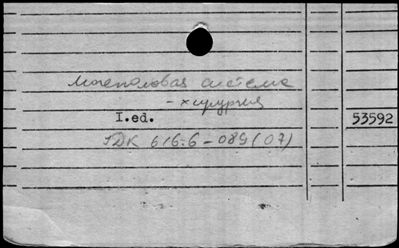 Мочеполовая система
- хирургия
I.ed. 53592
УДК 616.6-089(07)